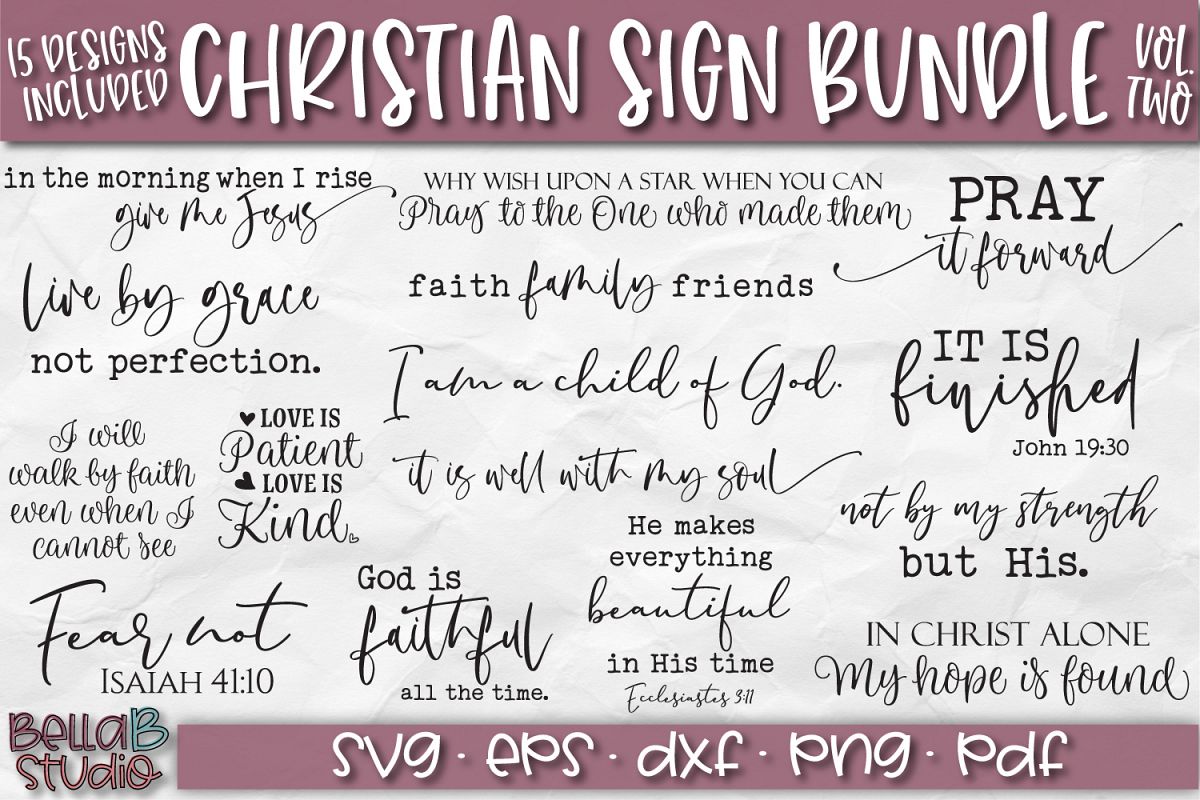 15 DESIGNS
INCLUDED
CHRISTIAN SIGN BUNDLE
VOL.
TWO
in the morning when I rise
give me Jesus
WHY WISH UPON A STAR WHEN YOU CAN
Pray to the One who made them
PRAY
it forward
live by grace
not perfection.
faith family friends
I am a child of God.
IT IS
finished
John 19:30
I will
walk by faith
even when I
cannot see
LOVE IS
Patient
LOVE IS
Kind
it is well with my soul
not by my strength
but His.
Fear not
ISAIAH 41:10
God is
faithful
all the time.
He makes
everything
beautiful
in His time
Ecclesiastes 3:11
IN CHRIST ALONE
My hope is found
BellaB
Studio
svg · eps · dxf · png · pdf